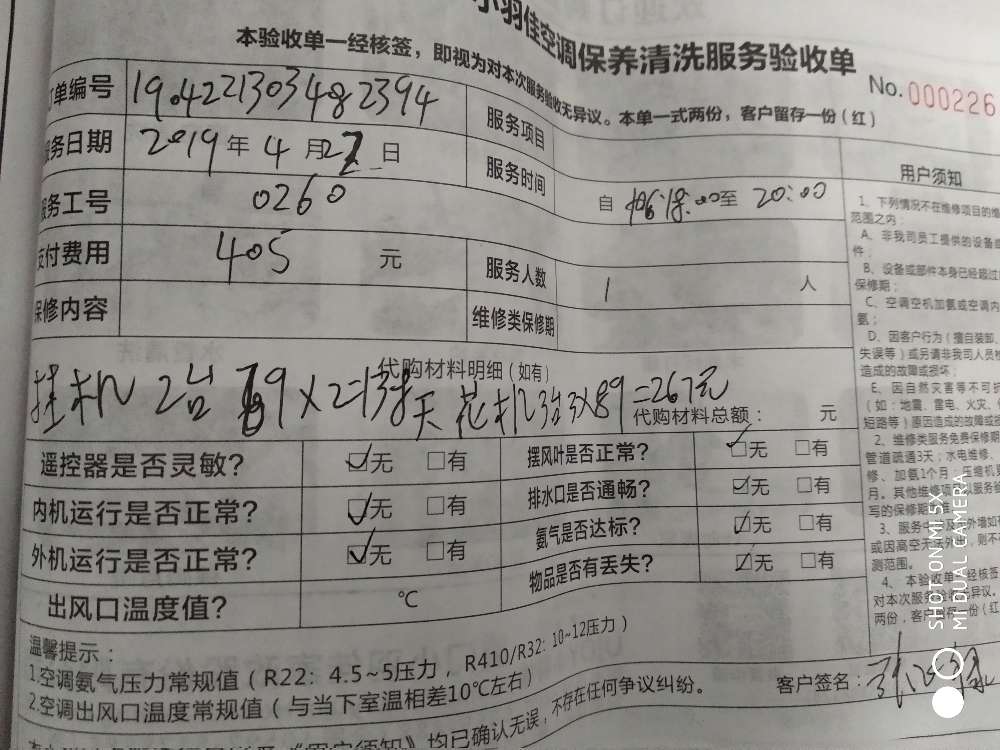 小羽佳空调保养清洗服务验收单
No.000226
本验收单一经核签，即视为对本次服务验收无异议。本单一式两份，客户留存一份（红）
订单编号 1904221303482394 服务项目
服务日期 2019年4月27日 服务时间 自 18:00至 20:00
服务工号 0260
支付费用 405 元 服务人数 1 人
保修内容 维修类保修期
代购材料明细（如有）
挂机2台 69×2=138 天花机3台3×89=267元
代购材料总额： 元
遥控器是否灵敏? ☑无 □有 摆风叶是否正常? ☑无 □有
内机运行是否正常? ☑无 □有 排水口是否通畅? ☑无 □有
外机运行是否正常? ☑无 □有 氨气是否达标? ☑无 □有
出风口温度值? ℃ 物品是否有丢失? ☑无 □有
用户须知
1、下列情况不在维修项目的维
范围之内：
A、非我司员工提供的设备或
件；
B、设备或部件本身已经超过
保修期；
C、空调空机加氨或空调内
氨；
D、因客户行为（擅自装卸、
失误等）或另请非我司人员
造成的故障或损坏；
E、因自然灾害等不可抗
（如：地震、雷电、火灾、
短路等）原因造成的故障或损
2、维修类服务免费保修期
管道疏通3天；水电维修、
修、加氨1个月；压缩机
月。其他维修项 以服务
写的保修期 准
3、服务中 及 外墙如
或因高空无法外出，则不
测范围。
4、本验收单一经核签
对本次服务验收无异议。
两份，客户留存一份（红
温馨提示：
1.空调氨气压力常规值（R22：4.5~5压力，R410/R32: 10~12压力）
2.空调出风口温度常规值（与当下室温相差10℃左右）
《用户须知》均已确认无误，不存在任何争议纠纷。
客户签名：
SHOT ON MI 5X
MI DUAL CAMERA